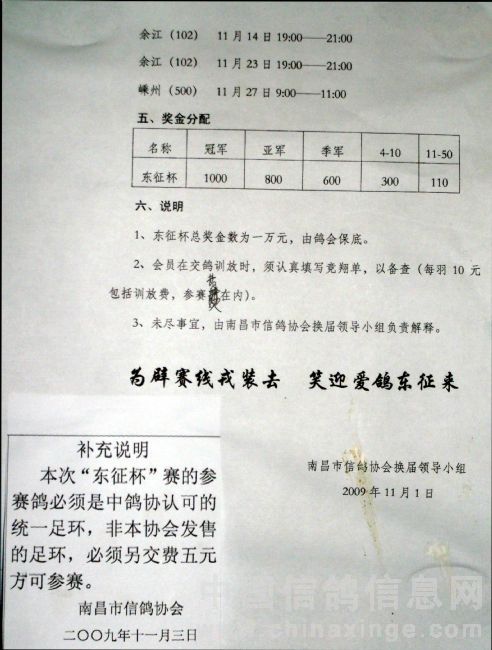 余江（102） 11月14日 19:00——21:00
余江（102） 11月23日 19:00——21:00
嵊州（500） 11月27日 9:00——11:00
五、奖金分配
名称 冠军 亚军 季军 4-10 11-50
东征杯 1000 800 600 300 110
六、说明
1、东征杯总奖金数为一万元，由鸽会保底。
2、会员在交鸽训放时，须认真填写竞翔单，以备查（每羽10元
包括训放费，参赛在内）。
3、未尽事宜，由南昌市信鸽协会换届领导小组负责解释。
为辟赛线戎装去 笑迎爱鸽东征来
南昌市信鸽协会换届领导小组
2009年11月1日
补充说明
本次“东征杯”赛的参
赛鸽必须是中鸽协认可的
统一足环，非本协会发售
的足环，必须另交费五元
方可参赛。
南昌市信鸽协会
二〇〇九年十一月三日
中国信鸽信息网
www.chinaxinge.com